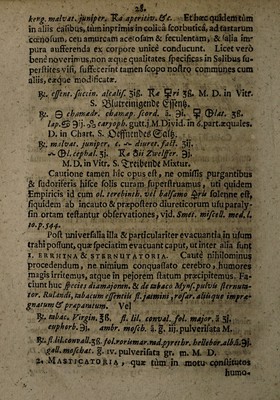 28.
berg. malvat. juniper. Ra aperitiv. &c. Et hæc quidem tùm
in aliis casibus, tùm inprimis in colicâ scorbuticâ, ad tartarum
cœnosum, ceu amurcam acetosam & feculentam, & alia im-
pura aufferenda ex corpore unicè conducunt. Licet verò
benè noverimus, non æque qualitates specificas in Salibus su-
perstites visi, suffecerint tamen scopo nostro communes cum
aliis, exque modificatæ.
essent. succin. alcalis. M. D. in Vitr.
S. Blutreinigende Essentz.
chamædr. chamæp. scord.
lap. caryoph. gutt. j. M. Divid. in 6. part. æquales.
D. in Chart. S. Oeffnendes Saltz.
malvat. juniper. diuret. fact.
cephal. Zwelffer.
M. D. in Vitr. S. Treibende Mixtur.
Cautione tamen hic opus est, ne omissis purgantibus
& sudoriferis hisce solis curam superstruamus, uti quidem
Empiricis id cum ol. terebinth. vel balsamo solenne est,
siquidem ab incauto & præpostero diureticorum usu paraly-
sin ortam testantur observationes, vid. Smet. miscell. med. l.
10. p. 544.
Post universalia illa & particulariter evacuantia in usum
trahi possunt, quæ speciatim evacuant caput, ut inter alia sunt
1. ERRHINA & STERNUTATORIA. Cautè nihilominus
procedendum, ne nimium conquassato cerebro, humores
magis irritemus, atque in pejorem statum præcipitemus. Fa-
ciunt huc species diamajoran. & de tabaco Myns. pulvis sternuta-
tor. Rulandi, tabacum essentiis fl. jasmini, rosar. aliisque impræ-
gnatum & præparatum. Vel
tabac. Virgin. fl. lil. conval. fol. major.
euphorb. ambr. mosch. pulverisata M.
fl. lil. convall. fol. rorismar. rad. pyrethr. hellebor. alb.
gall. moschat. pulverisata gr. m. M. D.
2. MASTICATORIA, quæ tùm in motu constitutos
humo-